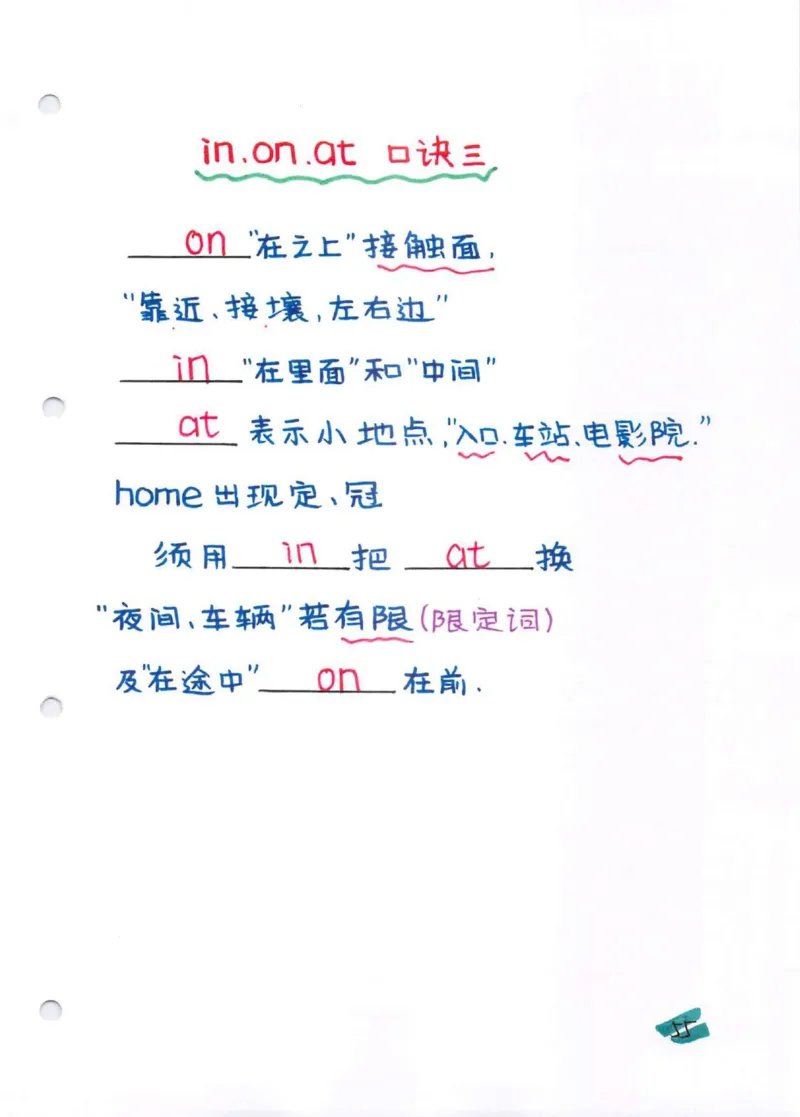 in.on.at 口诀三
on "在之上"接触面,
"靠近、接壤,左右边"
in "在里面"和"中间"
at 表示小地点,"入口.车站、电影院."
home 出现定、冠
须用 in 把 at 换
"夜间、车辆"若有限(限定词)
及"在途中" on 在前.
55